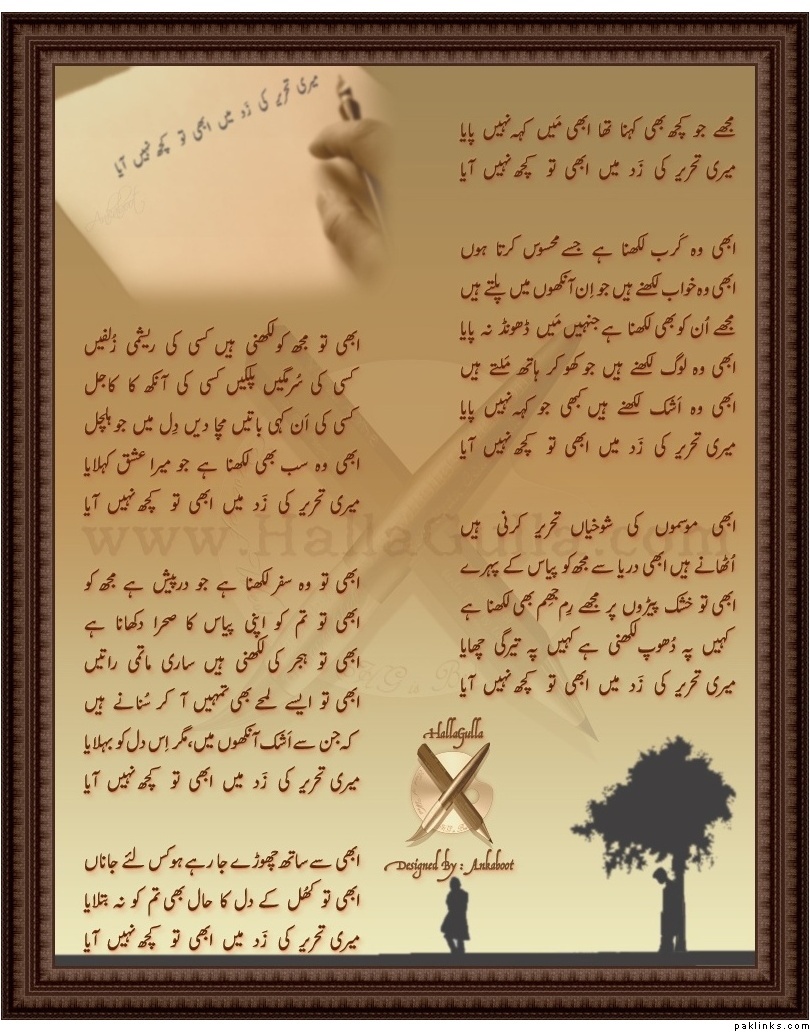 میری تحریر کی زَد میں ابھی تو کچھ نہیں آیا
مجھے جو کچھ بھی کہنا تھا ابھی مَیں کہہ نہیں پایا
میری تحریر کی زَد میں ابھی تو کچھ نہیں آیا
ابھی وہ کَرب لکھنا ہے جسے محسوس کرتا ہوں
ابھی وہ خواب لکھنے ہیں جو اِن آنکھوں میں پلتے ہیں
مجھے اُن کو بھی لکھنا ہے جنہیں مَیں ڈھونڈ نہ پایا
ابھی وہ لوگ لکھنے ہیں جو کھو کر ہاتھ مَلتے ہیں
ابھی وہ اَشک لکھنے ہیں کبھی جو کہہ نہیں پایا
میری تحریر کی زَد میں ابھی تو کچھ نہیں آیا
ابھی موسموں کی شوخیاں تحریر کرنی ہیں
اُٹھانے ہیں ابھی دریا سے مجھ کو پیاس کے پہرے
ابھی تو خشک پیڑوں پر مجھے رِم جھِم بھی لکھنا ہے
کہیں پہ دُھوپ لکھنی ہے کہیں پہ تیرگی چھایا
میری تحریر کی زَد میں ابھی تو کچھ نہیں آیا
ابھی تو مجھ کو لکھنی ہیں کسی کی ریشمی زُلفیں
کسی کی سُرمگیں پلکیں کسی کی آنکھ کا کاجل
کسی کی اَن کہی باتیں مچا دیں دِل میں جو ہلچل
ابھی وہ سب بھی لکھنا ہے جو میرا عشق کہلایا
میری تحریر کی زَد میں ابھی تو کچھ نہیں آیا
ابھی تو وہ سفر لکھنا ہے جو درپیش ہے مجھ کو
ابھی تو تم کو اپنی پیاس کا صحرا دکھانا ہے
ابھی تو ہجر کی لکھنی ہیں ساری ماتمی راتیں
ابھی تو ایسے لمحے بھی تمہیں آ کر سُنانے ہیں
کہ جن سے اَشک آنکھوں میں، مگر اِس دل کو بہلایا
میری تحریر کی زَد میں ابھی تو کچھ نہیں آیا
ابھی سے ساتھ چھوڑے جا رہے ہو کس لئے جاناں
ابھی تو کُھل کے دل کا حال بھی تم کو نہ بتلایا
میری تحریر کی زَد میں ابھی تو کچھ نہیں آیا
www.HallaGulla.com
HallaGulla
Designed By : Ankaboot
paklinks.com